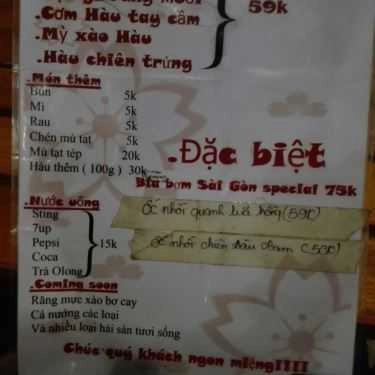 .Cơm Hàu tay cầm
59k
.Mỳ xào Hàu
.Hàu chiên trứng
.Món thêm
Bún 5k
Mì 5k
Rau 5k
Chén mù tạt 5k
Mù tạt tép 20k
Hàu thêm ( 100g ) 30k
.Đặc biệt
Bíu bơm Sài Gòn special 75k
.Nước uống
Sting
7up
Pepsi 15k
Coca
Trà Olong
Ốc nhồi
(59K)
Ốc nhồi chiên
.Coming soon
Răng mực xào bơ cay
Cá nướng các loại
Và nhiều loại hải sản tươi sống
Chúc quý khách ngon miệng!!!!